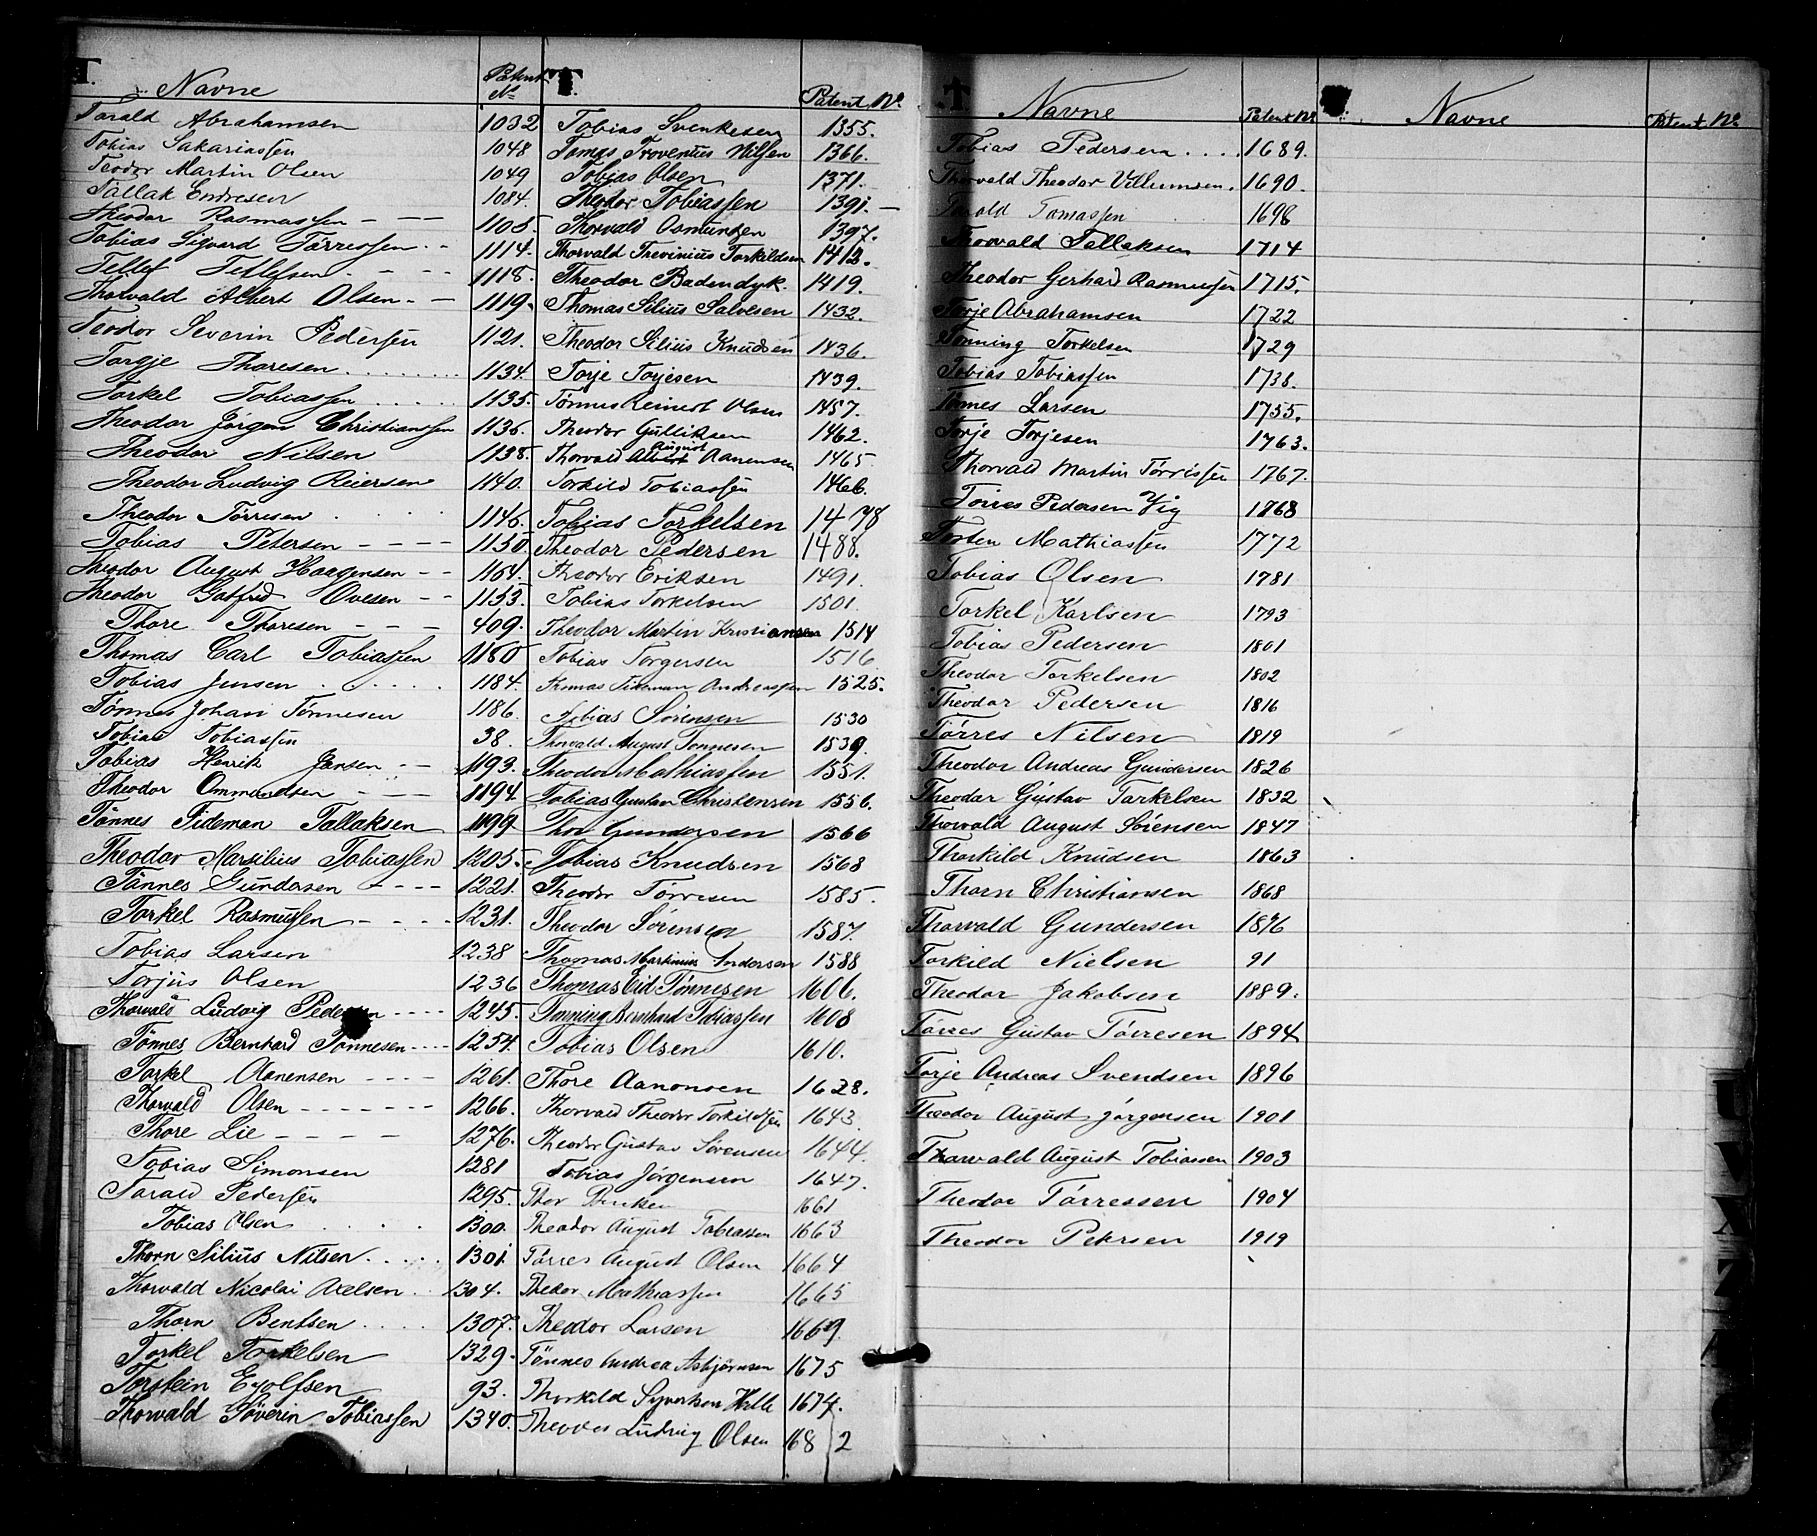 T. Navne Patent No
Tarald Abrahamsen 1032
Tobias Sakariassen 1048
Teodor Martin Olsen 1049
Tallak Endresen 1084.
Theodor Rasmussen 1105.
Tobias Sigvard Tørressen 1114.
Tellef Tellefsen 1118.
Thorvald Albert Olsen 1119.
Teodor Severin Pedersen 1121.
Torgje Thoresen 1134.
Torkel Tobiassen 1135.
Theodor Jørgen Christianssen 1136.
Theodor Nilsen 1138.
Theodor Ludvig Reiersen 1140.
Theodor Tørresen 1146.
Tobias Petersen 1150
Theodor August Horgensen 1164.
Theodor Gotfred Ovesen 1153.
Thore Thoresen 409.
Thomas Carl Tobiassen 1180
Tobias Jensen 1184.
Tønnes Johan Tønnesen 1186.
Tobias Tobiassen 38.
Tobias Henrik Jansen 1193.
Theodor Ommundsen 1194.
Tønnes Tideman Tallaksen 1199
Theodor Marsilius Tobiassen 1205.
Tønnes Gundersen 1221.
Torkel Rasmussen 1231.
Tobias Larsen 1238
Torjus Olsen 1236
Thorvald Ludvig Pedersen 1245.
Tønnes Bernhard Tønnesen 1254.
Torkel Aanensen 1261.
Thorvald Olsen 1266.
Thore Lie 1276.
Tobias Simonsen 1281
Tarald Pedersen 1295.
Tobias Olsen 1300.
Thorn Silius Nilsen 1301.
Thorvald Nicolai Axelsen 1304.
Thorn Bentsen 1307.
Torkel Torkelsen 1329.
Torstein Eyolfsen 93.
Thorvald Søverin Tobiassen 1340.
T. Patent No.
Tobias Svenkesen 1355.
Tomas Troventius Nilsen 1366.
Tobias Olsen 1371.
Theodor Tobiassen 1391.
Thorvald Osmundsen 1397.
Thorvald Trevinius Torkildsen 1412.
Theodor Badendyk. 1419.
Thomas Silius Salvesen 1432.
Theodor Silius Knudsen 1436.
Torje Torjesen 1439.
Tønnes Reinert Olsen 1457.
Theodor Gulliksen 1462.
Thorvald August Aanensen 1465.
Torkild Tobiassen 1466.
Tobias Torkelsen 1478
Theodor Pedersen 1488.
Theodor Eriksen 1491.
Tobias Torkelsen 1501.
Theodor Martin Kristiansen 1514
Tobias Torgersen 1516.
Thomas Tideman Andreassen 1525.
Tobias Sørensen 1530
Thorvald August Tønnesen 1539.
Theodor Mathiassen 1551.
Tobias Gustav Christensen 1556.
Thor Gundersen 1566
Tobias Knudsen 1568
Theodor Tørresen 1585.
Theodor Sørensen 1587.
Thomas Martinius Andersen 1588
Thomas Eid Tønnesen 1606.
Tønning Bernhard Tobiassen 1608
Tobias Olsen 1610.
Thore Aanonsen 1628.
Thorvald Theodor Torkildsen 1643.
Theodor Gustav Sørensen 1644.
Tobias Jørgensen 1647.
Thor 1661
Theodor August Tobiassen 1663
Tørres August Olsen 1664
Theodor Mathiassen 1665
Theodor Larsen 1669.
Tønnes Andrea Asbjørnsen 1675
Thorkild Syvertsen Helle 1674.
Theodor Ludvig Olsen 1682
T. Navne Patent No
Tobias Pedersen 1689.
Thorvald Theodor Villumsen. 1690.
Tarald Tomassen 1698
Thorvald Tallaksen 1714
Theodor Gerhard Rasmussen 1715.
Torje Abrahamsen 1722
Tønning Torkelsen 1729
Tobias Tobiassen 1738.
Tønnes Larsen 1755.
Torje Torjesen 1763.
Thorvald Martin Tørrissen 1767.
Tørres Pedersen Yig 1768
Torsten Mathiassen 1772
Tobias Olsen 1781
Torkel Karlsen 1793
Tobias Pedersen 1801
Theodor Torkelsen 1802
Theodor Pedersen 1816
Tørres Nilsen 1819
Theodor Andreas Gundersen 1826
Theodor Gustav Torkelsen 1832
Thorvald August Sørensen 1847
Thorkild Knudsen 1863
Thorn Christiansen 1868
Thorvald Gundersen 1876
Torkild Nielsen 91
Theodor Jakobsen 1889.
Tørres Gustav Tørresen 1894
Torje Andreas Svendsen 1896
Theodor August Jørgensen 1901
Thorvald August Tobiassen 1903
Theodor Tørressen 1904
Theodor Petersen 1919
Navne Patent No